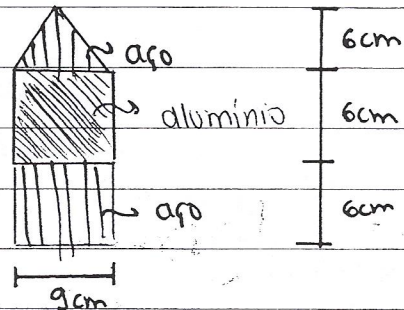 aço
6cm
alumínio
6cm
aço
6cm
9cm